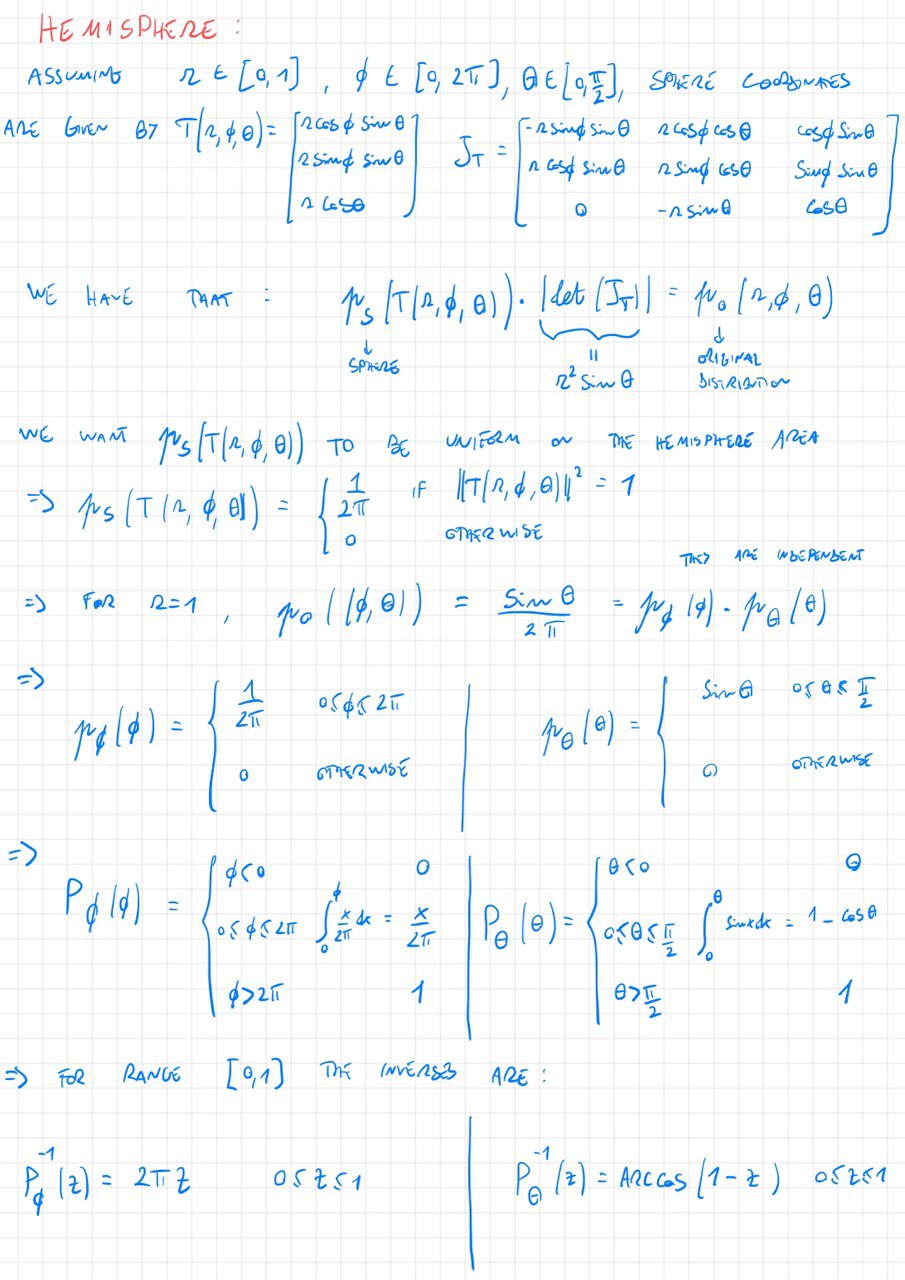 HEMISPHERE :
ASSUMING r ∈ [0,1] , ϕ ∈ [0, 2π], θ ∈ [0, π/2], SPHERE COORDINATES
ARE GIVEN BY T(r,ϕ,θ) = [r cosϕ sinθ ; r sinϕ sinθ ; r cosθ] J_T = [-r sinϕ sinθ, r cosϕ cosθ, cosϕ sinθ ; r cosϕ sinθ, r sinϕ cosθ, sinϕ sinθ ; 0, -r sinθ, cosθ]
WE HAVE THAT : p_s(T(r,ϕ,θ)) · |det(J_T)| = p_o(r,ϕ,θ)
↓ SPHERE = r² sinθ ↓ ORIGINAL DISTRIBUTION
WE WANT p_s(T(r,ϕ,θ)) TO BE UNIFORM ON THE HEMISPHERE AREA
=> p_s(T(r,ϕ,θ)) = { 1/2π IF ||T(r,ϕ,θ)||² = 1
0 OTHERWISE
THEY ARE INDEPENDENT
=> FOR r=1 , p_o((ϕ,θ)) = sinθ / 2π = p_ϕ(ϕ) · p_θ(θ)
=>
p_ϕ(ϕ) = { 1/2π 0≤ϕ≤2π
0 OTHERWISE
p_θ(θ) = { sinθ 0≤θ≤π/2
0 OTHERWISE
=>
P_ϕ(ϕ) = { ϕ<0 0
0≤ϕ≤2π ∫₀^ϕ x/2π dx = x/2π
ϕ>2π 1
P_θ(θ) = { θ<0 0
0≤θ≤π/2 ∫₀^θ sinx dx = 1 - cosθ
θ>π/2 1
=> FOR RANGE [0,1] THE INVERSES ARE :
P_ϕ⁻¹(z) = 2πz 0≤z≤1
P_θ⁻¹(z) = ARCCOS(1-z) 0≤z≤1